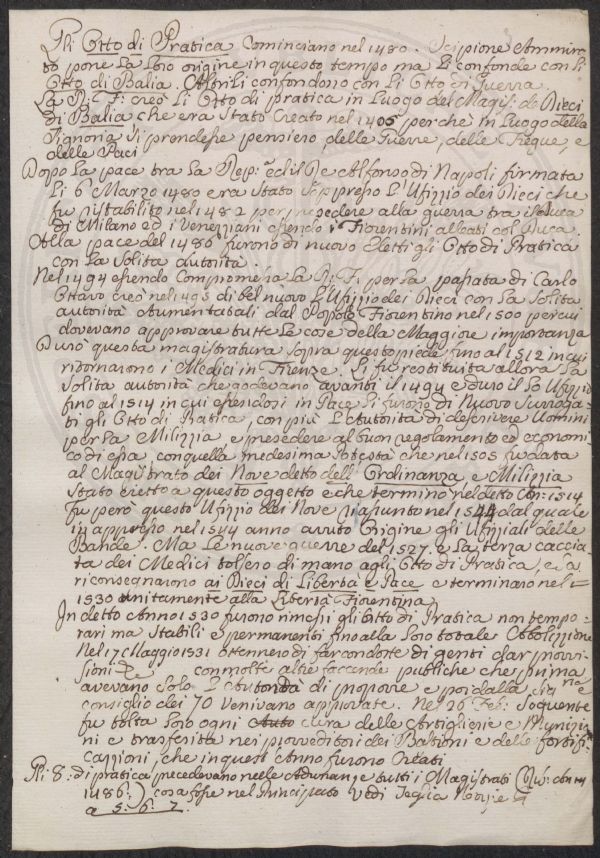 Gli Otto di Pratica Cominciano nel 1480. Scipione Ammira
to pone la loro origine in questo tempo ma li confonde con li
Otto di Balia. Altri li confondono con li Otto di Guerra.
La R: F: creò li Otto di pratica in luogo del Magis: de Dieci
di Balia che era stato creato nel 1406 perche in luogo della
Signoria si prendesse pensiero delle Guerre, delle Tregue, e
delle Paci
Dopo la pace tra la Rep: ed il Re Alfonso di Napoli firmata
li 6 Marzo 1480 era stato soppresso l'Ufizio dei Dieci che
fu ristabilito nel 1482 per presedere alla guerra tra il Duca
di Milano ed i Veneziani essendo i Fiorentini alleati col Duca.
Alla pace del 1486 furono di nuovo Eletti gli Otto di Pratica
con la solita autorità.
Nel 1494 essendo Compromessa la R: F: per la passata di Carlo
Ottavo creò nel 1495 di bel nuovo l'Ufizio dei Dieci con la solita
autorità aumentatali dal Popolo Fiorentino nel 1500 per cui
dovevano approvare tutte le cose della Maggiore importanza
Durò questa magistratura sopra questo piede fino al 1512 in cui
ritornarono i Medici in Firenze. Li fu restituita allora la
solita autorità che godevano avanti il 1494 e durò il lo Ufizio
fino al 1514 in cui essendosi in Pace li furono di Nuovo surroga-
ti gli Otto di Pratica, con più l'autorità di descrivere Uomini
per la Milizia, e presedere al buon regolamento ed economi
co di essa, con quella medesima Potestà che nel 1505 fu data
al Magistrato dei Nove detto dell'Ordinanza e Milizia
stato eretto a questo oggetto e che terminò nel detto An: 1514
fu però questo Ufizio dei Nove riassunto nel 1544 dal quale
in appresso nel 1544 anno avuto Origine gli Ufiziali delle
Bande. Ma le nuove guerre del 1527. e la terza caccia
ta dei Medici tolsero di mano agli Otto di Pratica, e la
riconsegnarono ai Dieci di Libertà e Pace e terminaro nel =
1530 unitamente alla Libertà Fiorentina
In detto Anno 1530 furono rimessi gli otto di Pratica non tempo-
rari ma Stabili e permanenti fino alla loro totale Abolizione
Nel 17 Maggio 1531 ottennero di far condotte di genti dar provvi-
sioni con molte altre faccende publiche che prima
avevano solo l'autorità di proporre e poi dalla Sig:ne e
consiglio dei 70 venivano approvate. Nel 26 Feb: seguente
fu tolta loro ogni cura delle Artiglierie e Munizio
ni e trasferita nei provveditori dei Bastioni e delle fortifi-
cazioni, che in quest'Anno furono Creati
Gli 8: di pratica precedevano nelle Adunanze tutti i Magistrati
1486:) cosa fosse nel Principato vedi Teglia Notizie
a 5. 6. 7.